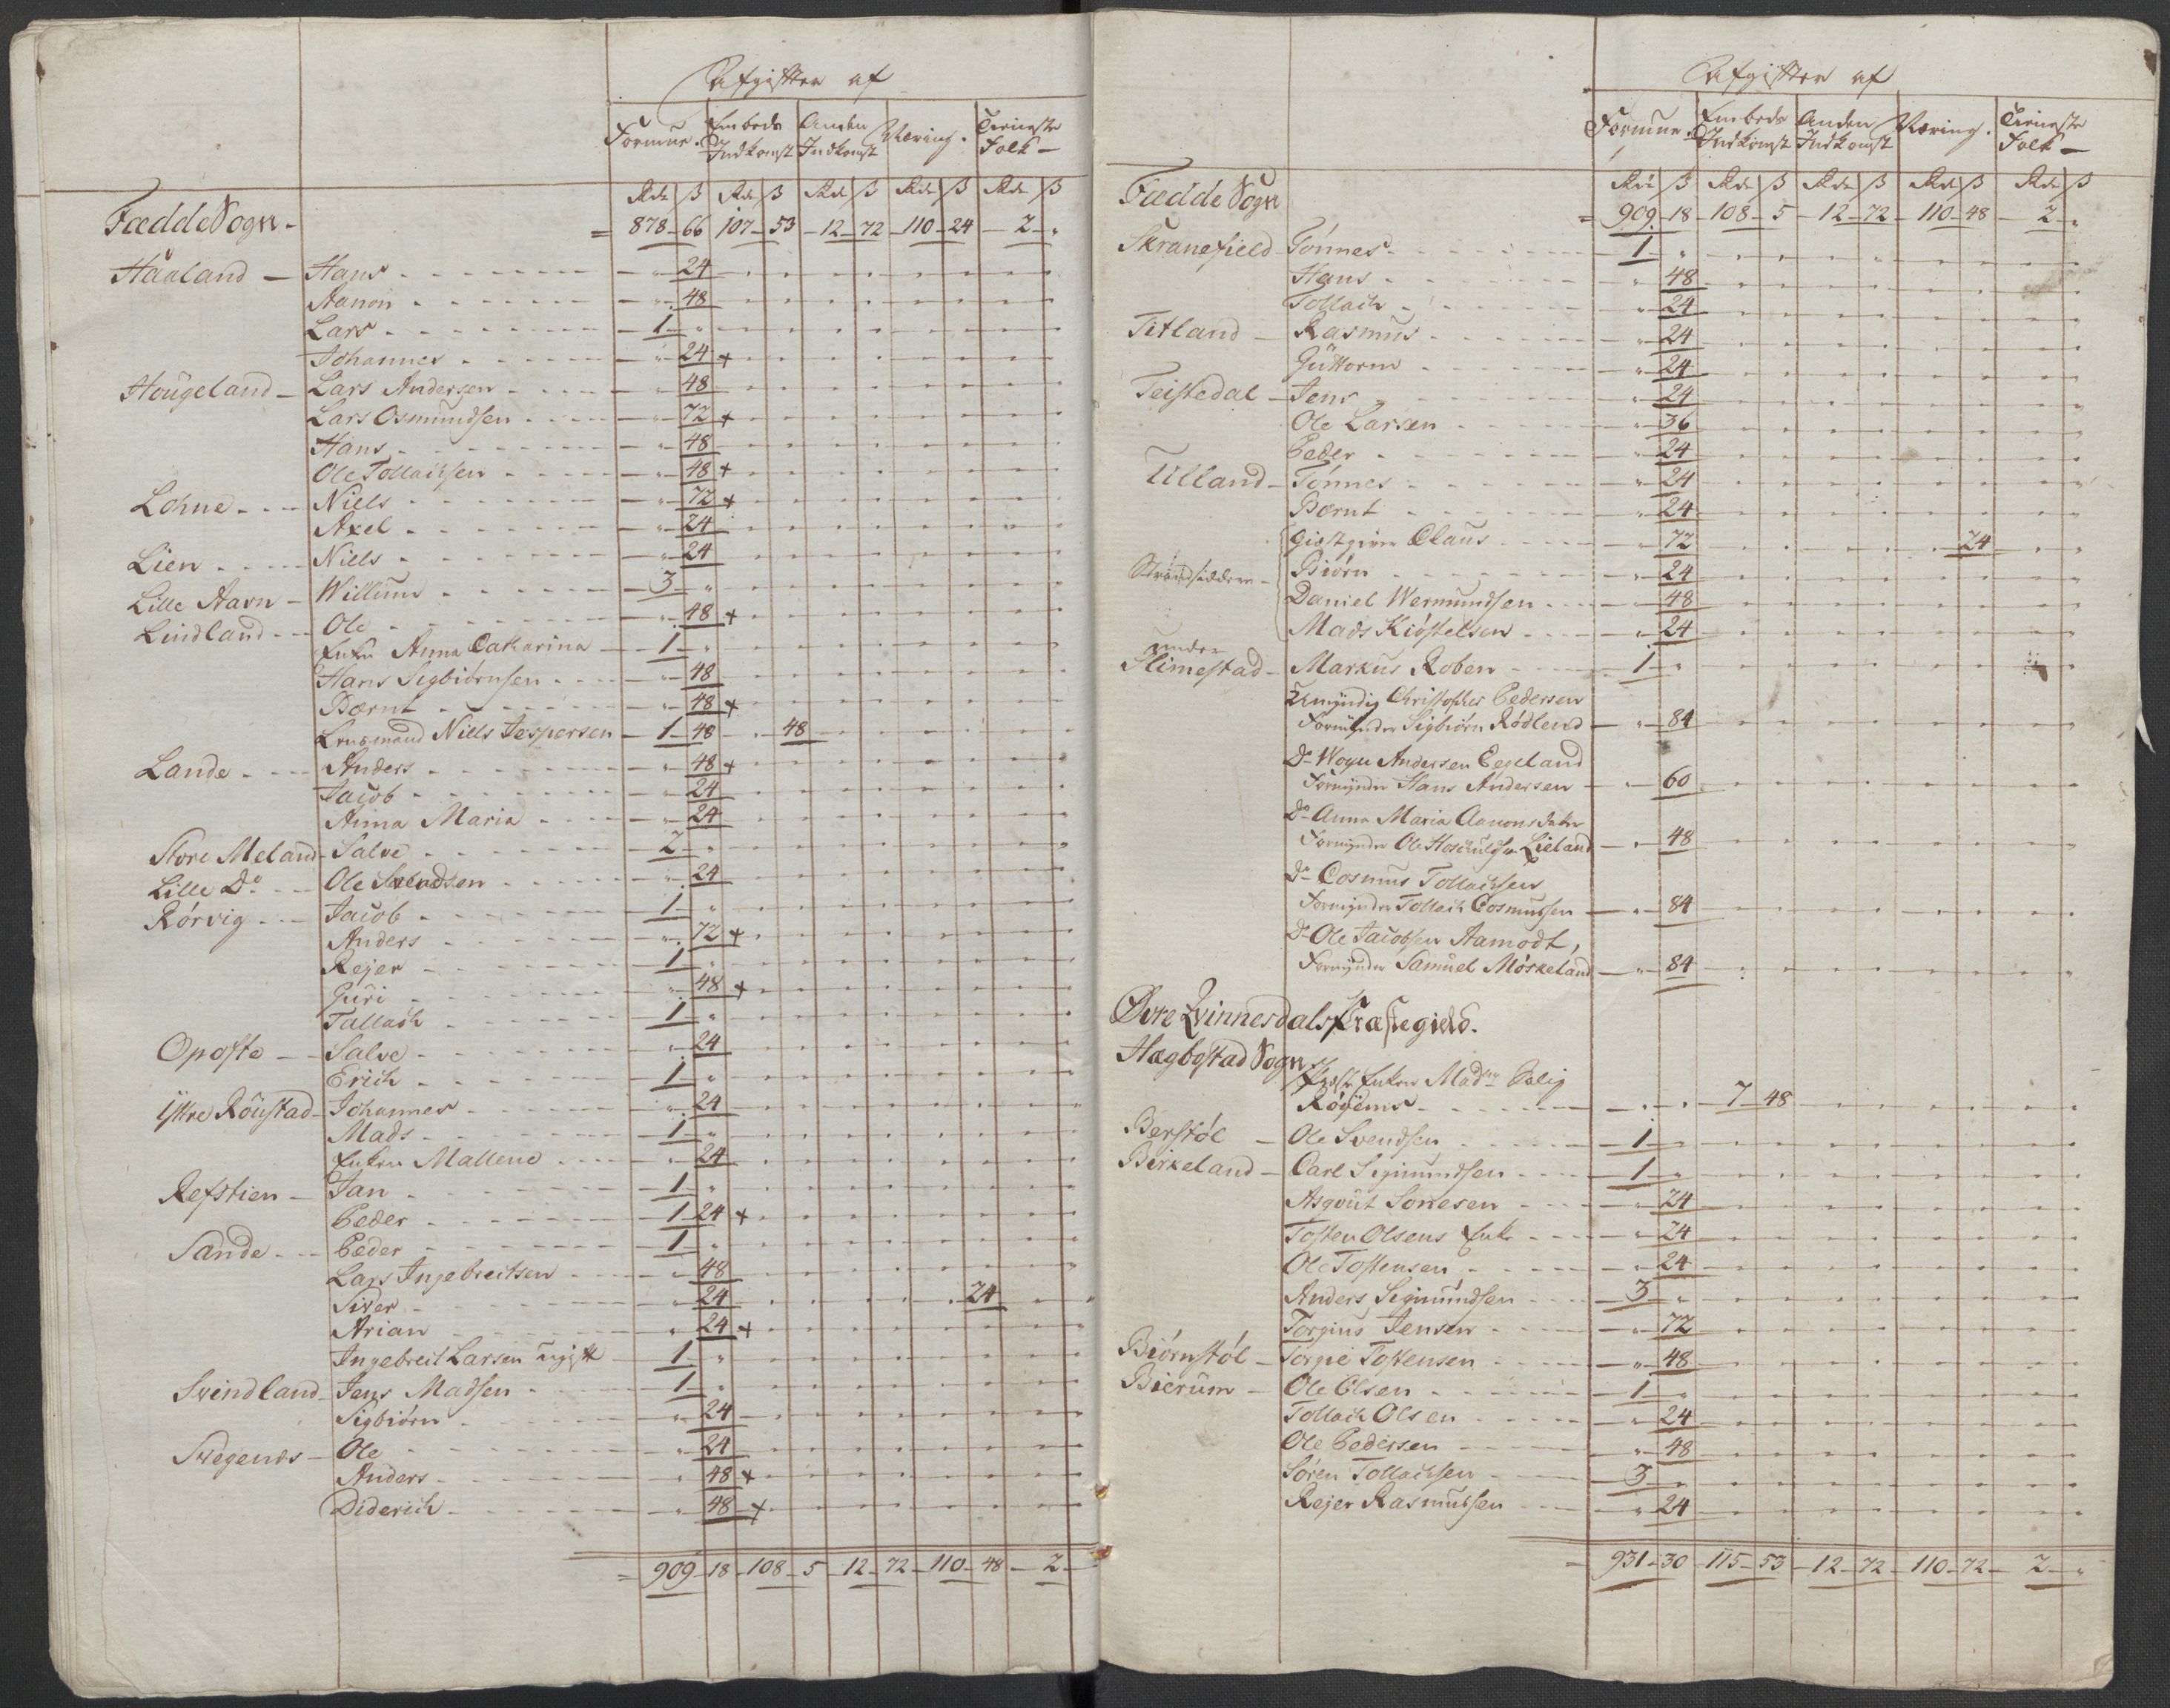 Afgifter af
Formue. Embeds Indkomst Anden Indkomst Næring. Tieneste Folk
Rd ß Rd ß Rd ß Rd ß Rd ß
Fædde Sogn - = 878 - 66 107 - 53 - 12 - 72 - 110 - 24 - 2 - "
Haaland - Hans - " 24
Aanon - " 48
Lars - 1 - "
Johannes - " 24 +
Hougeland - Lars Andersen - " 48
Lars Osmundsen - " 72 +
Hans - " 48
Ole Tollachsen - " 48 +
Lohne - Niels - " 72 +
Axel - " 24
Lien - Niels - " 24
Lille Aavn - Willum - 3 - "
Lindland - Ole - " 48 +
Enken Anna Catharina - 1 - "
Hans Sigbiørnsen - " 48
Bærnt - " 48 +
Lensmand Niels Jespersen - 1 - 48 - " 48
Lande - Anders - " 48 +
Jacob - " 24
Anna Maria - " 24
Store Meland - Salve - 2 - "
Lille Do - Ole Salvedsen - " 24
Rørvig - Jacob - 1 - "
Anders - " 72 +
Rejer - 1 - "
Guri - " 48 +
Tallach - 1 - "
Opofte - Salve - " 24
Erich - 1 - "
Ÿttre Røustad - Johannes - " 24
Mads - 1 - "
Enken Mallene - " 24
Refstien - Jan - 1 - "
Peder - 1 24 +
Sande - Peder - 1 - "
Lars Ingebreitsen - " 48
Siver - " 24 - " 24
Arian - " 24 +
Ingebreit Larsen ugift - 1 - "
Svindland - Jens Madsen - 1 - "
Sigbiørn - " 24
Svegenæs - Ole - " 24
Anders - " 48 +
Diderich - " 48 +
= 909 - 18 - 108 - 5 - 12 - 72 - 110 - 48 - 2 -
Afgifter af
Formue. Embeds Indkomst Anden Indkomst Næring. Tieneste Folk
Rd ß Rd ß Rd ß Rd ß Rd ß
Fædde Sogn = 909 - 18 - 108 - 5 - 12 - 72 - 110 - 48 - 2 - "
Skranefield - Tønnes - 1 - "
Hans - " 48
Tollach - " 24
Titland - Rasmus - " 24
Guttorm - " 24
Teistedal - Jens - " 24
Ole Larsen - " 36
Peder - " 24
Ulland - Tønnes - " 24
Bærnt - " 24
Giestgiver Claus - " 72 - " 24
Strandsiddere - Biørn - " 24
Daniel Wermundsen - " 48
Mads Kiøstelsen - " 24
under
Slimestad - Markus Roben - 1 - "
Umÿndig Christopher Pedersen
Formÿnder Sigbiørn Rødland - " 84
Do Andersen Egeland
Formÿnder Hans Andersen - " 60
Do Anna Maria Aanonsdatter
Formÿnder Ole Lieland - " 48
Do Cosmus Tollachsen
Formÿnder Tollach Cosmussen - " 84
Do Ole Jacobsen Aamodt,
Formÿnder Samuel Møskeland - " 84
Øvre Qvinnesdals Præstegield.
Hægbostad Sogn
Præste Enken Madme Salig
Røÿems - " " 7 - 48
Berstøl - Ole Svendsen - 1 - "
Birkeland - Carl Sigmundsen - 1 - "
Asgout Sonesen - " 24
Tosten Olsens Enke - " 24
Ole Tostensen - " 24
Anders Sigmundsen - 3 - "
Torgius Jensen - " 72
Biørnstøl - Torgie Tostensen - " 48
Bierum - Ole Olsen - 1 - "
Tollach Olsen - " 24
Ole Pedersen - " 48
Søren Tollachsen - 3 - "
Rejer Rasmussen - " 24
= 931 - 30 - 115 - 53 - 12 - 72 - 110 - 72 - 2 - "